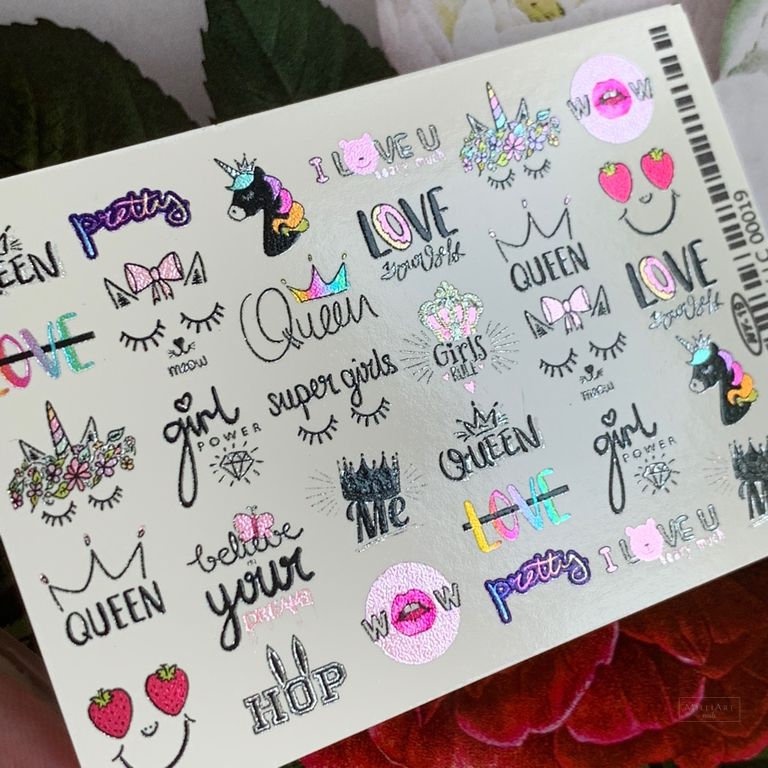 WOW
I LOVE U
beary much
pretty
LOVE
yourself
QUEEN
QUEEN
LOVE
yourself
LOVE
meow
Queen
Girls
RULE
meow
super girls
girl
POWER
QUEEN
girl
POWER
Me
Me
LOVE
QUEEN
believe
in
your
DREAMS
WOW
pretty
I LOVE U
beary much
HOP
00019
№19
MilliArt
nails